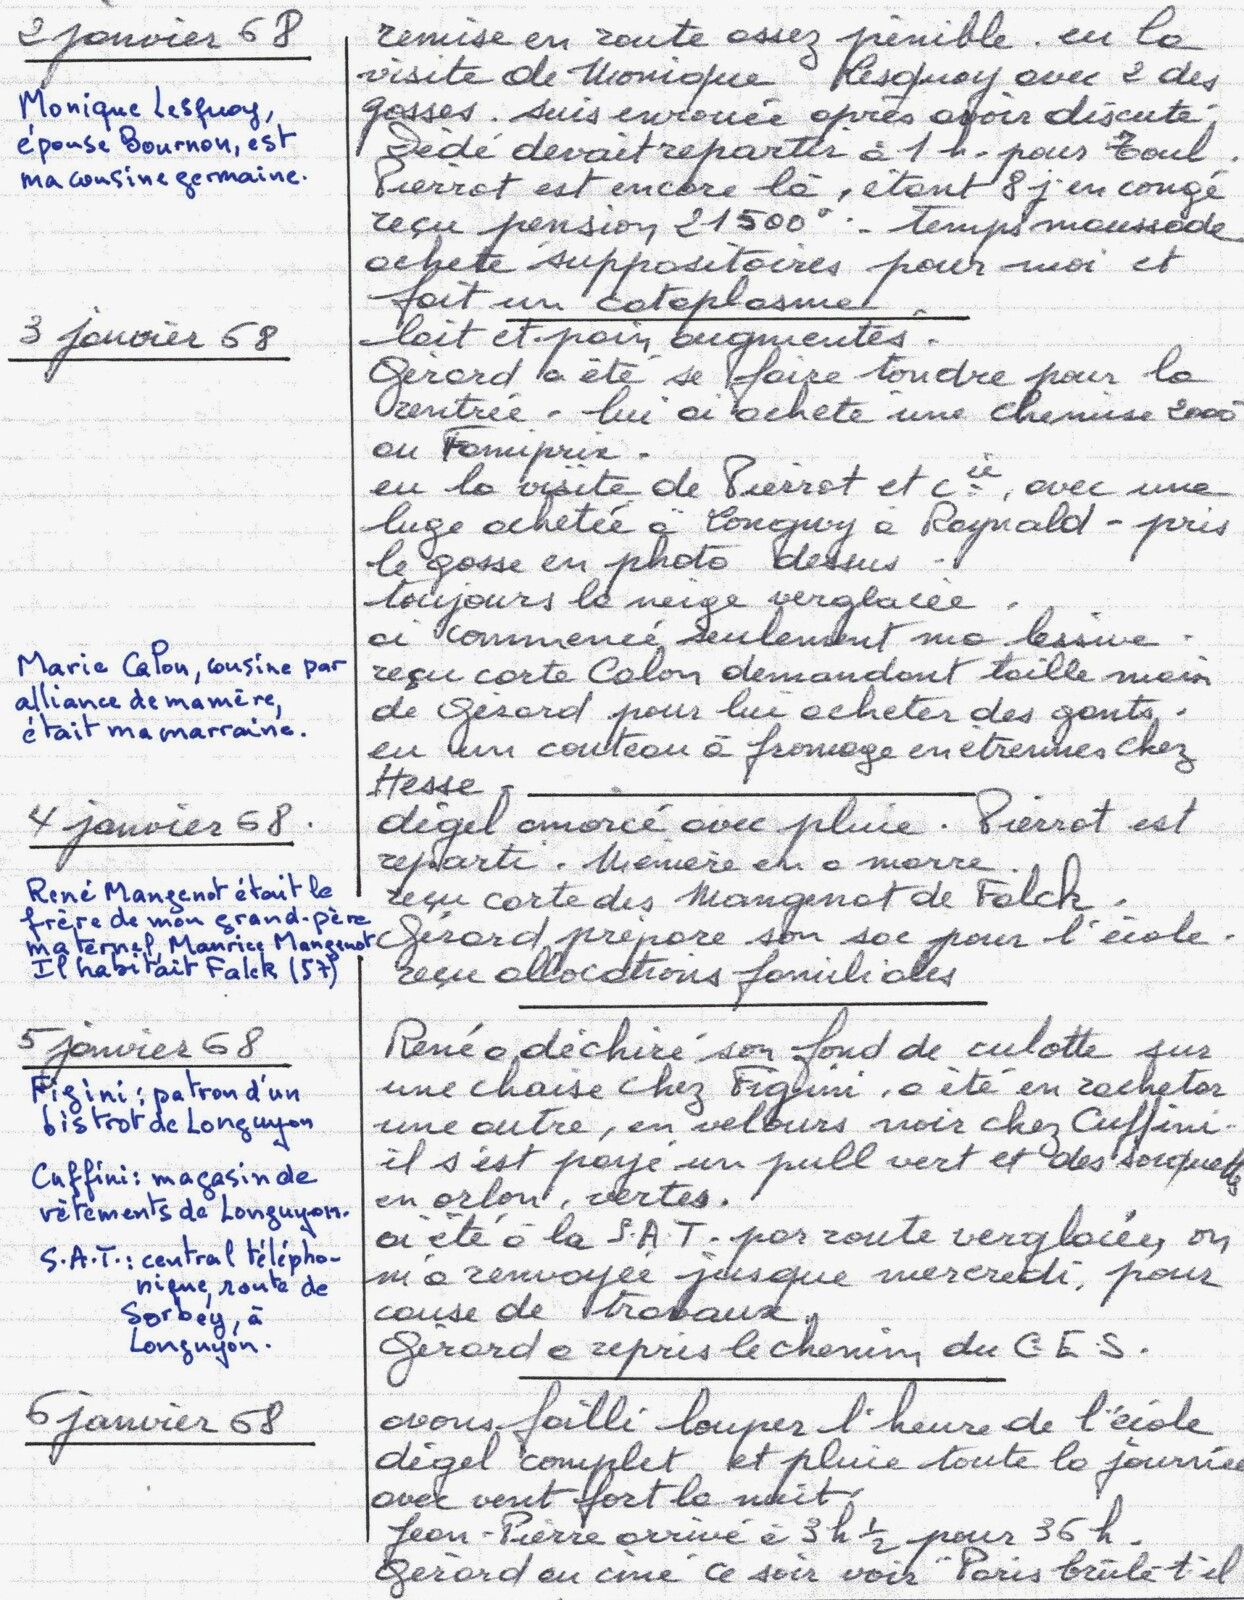 2 janvier 68
remise en route assez pénible. eu la
visite de Monique Lesquoy avec 2 des
gosses. suis enrouée après avoir discuté,
Dédé devait repartir à 1 h. pour Toul.
Pierrot est encore là, étant 8 j. en congé
reçu pension 21500°. - temps maussade
acheté suppositoires pour moi et
fait un cataplasme.
Monique Lesquoy,
épouse Bournon, est
ma cousine germaine.
3 janvier 68
lait et pain augmentés.
Gérard a été se faire tondre pour la
rentrée - lui ai acheté une chemise 2000°
au Famiprix.
eu la visite de Pierrot et Cie, avec une
luge achetée à Longwy à Raynald - pris
le gosse en photo dessus -
toujours la neige verglacée.
ai commencé seulement ma lessive.
reçu carte Calon demandant taille main
de Gérard pour lui acheter des gants.
eu un couteau à fromage en étrennes chez
Hesse -
Marie Calon, cousine par
alliance de ma mère,
était ma marraine.
4 janvier 68.
dégel amorcé avec pluie. Pierrot est
reparti. Mémère en a marre.
reçu carte des Mangenot de Falck.
Gérard prépare son sac pour l'école.
reçu allocations familiales
René Mangenot était le
frère de mon grand-père
maternel, Maurice Mangenot
Il habitait Falck (57)
5 janvier 68
René a déchiré son fond de culotte sur
une chaise chez Figini. a été en racheter
une autre, en velours noir chez Cuffini -
il s'est payé un pull vert et des socquettes
en orlon, vertes.
ai été à la S.A.T. par route verglacée, on
m'a renvoyée jusque mercredi, pour
cause de travaux.
Gérard a repris le chemin du C.E.S.
Figini : patron d'un
bistrot de Longuyon
Cuffini : magasin de
vêtements de Longuyon.
S.A.T. : central télépho-
nique, route de
Sorbey, à
Longuyon.
6 janvier 68
avons failli louper l'heure de l'école
dégel complet et pluie toute la journée
avec vent fort la nuit.
Jean-Pierre arrivé à 3h ½ pour 36 h.
Gérard au ciné ce soir voir "Paris brûle-t-il